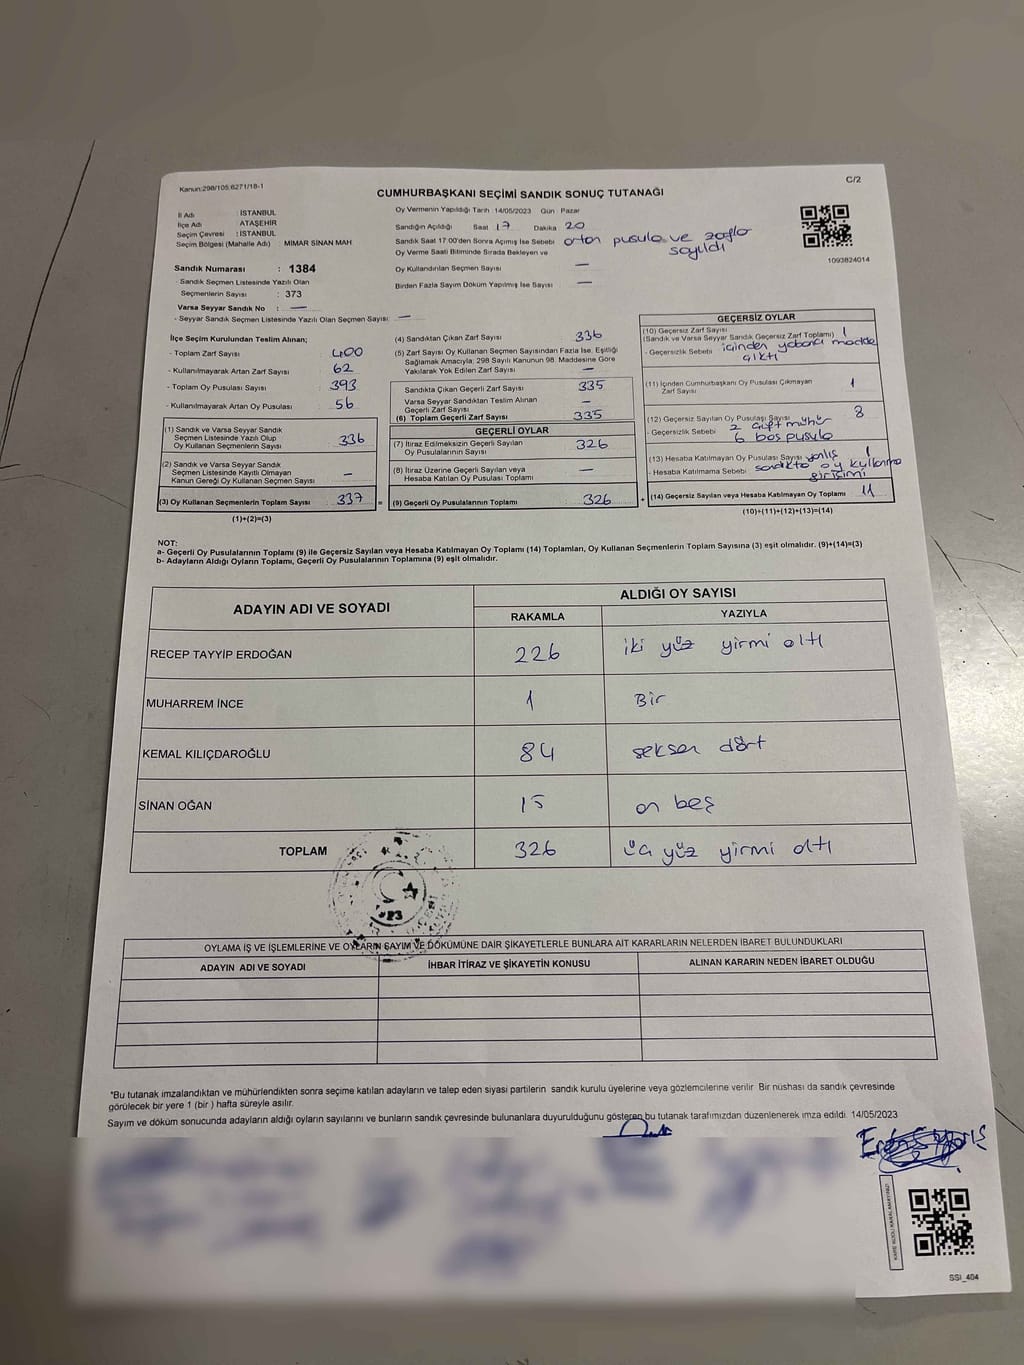 Kanun:298/105;6271/18-1
C/2
CUMHURBAŞKANI SEÇİMİ SANDIK SONUÇ TUTANAĞI
İl Adı : İSTANBUL
İlçe Adı : ATAŞEHİR
Seçim Çevresi : İSTANBUL
Seçim Bölgesi (Mahalle Adı) MİMAR SİNAN MAH
Sandık Numarası : 1384
- Sandık Seçmen Listesinde Yazılı Olan
Seçmenlerin Sayısı : 373
Varsa Seyyar Sandık No : —
- Seyyar Sandık Seçmen Listesinde Yazılı Olan Seçmen Sayısı: —
Oy Vermenin Yapıldığı Tarih 14/05/2023 Gün Pazar
Sandığın Açıldığı Saat 17 Dakika 20
Sandık Saat 17:00'den Sonra Açımış İse Sebebi artan pusula ve zarflar sayıldı
Oy Verme Saati Bitiminde Sırada Bekleyen ve
Oy Kullandırılan Seçmen Sayısı —
Birden Fazla Sayım Döküm Yapılmış İse Sayısı —
1093824014
İlçe Seçim Kurulundan Teslim Alınan;
- Toplam Zarf Sayısı 400
- Kullanılmayarak Artan Zarf Sayısı 62
- Toplam Oy Pusulası Sayısı 393
- Kullanılmayarak Artan Oy Pusulası 56
(1) Sandık ve Varsa Seyyar Sandık
Seçmen Listesinde Yazılı Olup
Oy Kullanan Seçmenlerin Sayısı 336
(2) Sandık ve Varsa Seyyar Sandık
Seçmen Listesinde Kayıtlı Olmayan
Kanun Gereği Oy Kullanan Seçmen Sayısı —
(3) Oy Kullanan Seçmenlerin Toplam Sayısı 337 =
(1)+(2)=(3)
(4) Sandıktan Çıkan Zarf Sayısı 336
(5) Zarf Sayısı Oy Kullanan Seçmen Sayısından Fazla İse, Eşitliği
Sağlamak Amacıyla; 298 Sayılı Kanunun 98. Maddesine Göre
Yakılarak Yok Edilen Zarf Sayısı —
Sandıkta Çıkan Geçerli Zarf Sayısı 335
Varsa Seyyar Sandıktan Teslim Alınan
Geçerli Zarf Sayısı —
(6) Toplam Geçerli Zarf Sayısı 335
GEÇERLİ OYLAR
(7) İtiraz Edilmeksizin Geçerli Sayılan
Oy Pusulalarının Sayısı 326
(8) İtiraz Üzerine Geçerli Sayılan veya
Hesaba Katılan Oy Pusulası Toplamı —
(9) Geçerli Oy Pusulalarının Toplamı 326 +
GEÇERSİZ OYLAR
(10) Geçersiz Zarf Sayısı
(Sandık ve Varsa Seyyar Sandık Geçersiz Zarf Toplamı) 1
- Geçersizlik Sebebi içinden yabancı madde
çıktı
(11) İçinden Cumhurbaşkanı Oy Pusulası Çıkmayan
Zarf Sayısı 1
(12) Geçersiz Sayılan Oy Pusulası Sayısı 8
- Geçersizlik Sebebi 2 çift mühür
6 boş pusula
(13) Hesaba Katılmayan Oy Pusulası Sayısı 1
- Hesaba Katılmama Sebebi yanlış sandıkta oy kullanma
girişimi
(14) Geçersiz Sayılan veya Hesaba Katılmayan Oy Toplamı 11
(10)+(11)+(12)+(13)=(14)
NOT:
a- Geçerli Oy Pusulalarının Toplamı (9) ile Geçersiz Sayılan veya Hesaba Katılmayan Oy Toplamı (14) Toplamları, Oy Kullanan Seçmenlerin Toplam Sayısına (3) eşit olmalıdır. (9)+(14)=(3)
b- Adayların Aldığı Oyların Toplamı, Geçerli Oy Pusulalarının Toplamına (9) eşit olmalıdır.
ADAYIN ADI VE SOYADI ALDIĞI OY SAYISI
RAKAMLA YAZIYLA
RECEP TAYYİP ERDOĞAN 226 iki yüz yirmi altı
MUHARREM İNCE 1 Bir
KEMAL KILIÇDAROĞLU 84 seksen dört
SİNAN OĞAN 15 on beş
TOPLAM 326 üç yüz yirmi altı
OYLAMA İŞ VE İŞLEMLERİNE VE OYLARIN SAYIM VE DÖKÜMÜNE DAİR ŞİKAYETLERLE BUNLARA AİT KARARLARIN NELERDEN İBARET BULUNDUKLARI
ADAYIN ADI VE SOYADI İHBAR İTİRAZ VE ŞİKAYETİN KONUSU ALINAN KARARIN NEDEN İBARET OLDUĞU
*Bu tutanak imzalandıktan ve mühürlendikten sonra seçime katılan adayların ve talep eden siyasi partilerin sandık kurulu üyelerine veya gözlemcilerine verilir Bir nüshası da sandık çevresinde
görülecek bir yere 1 (bir ) hafta süreyle asılır.
Sayım ve döküm sonucunda adayların aldığı oyların sayılarını ve bunların sandık çevresinde bulunanlara duyurulduğunu gösteren bu tutanak tarafımızdan düzenlenerek imza edildi. 14/05/2023
SSI_404